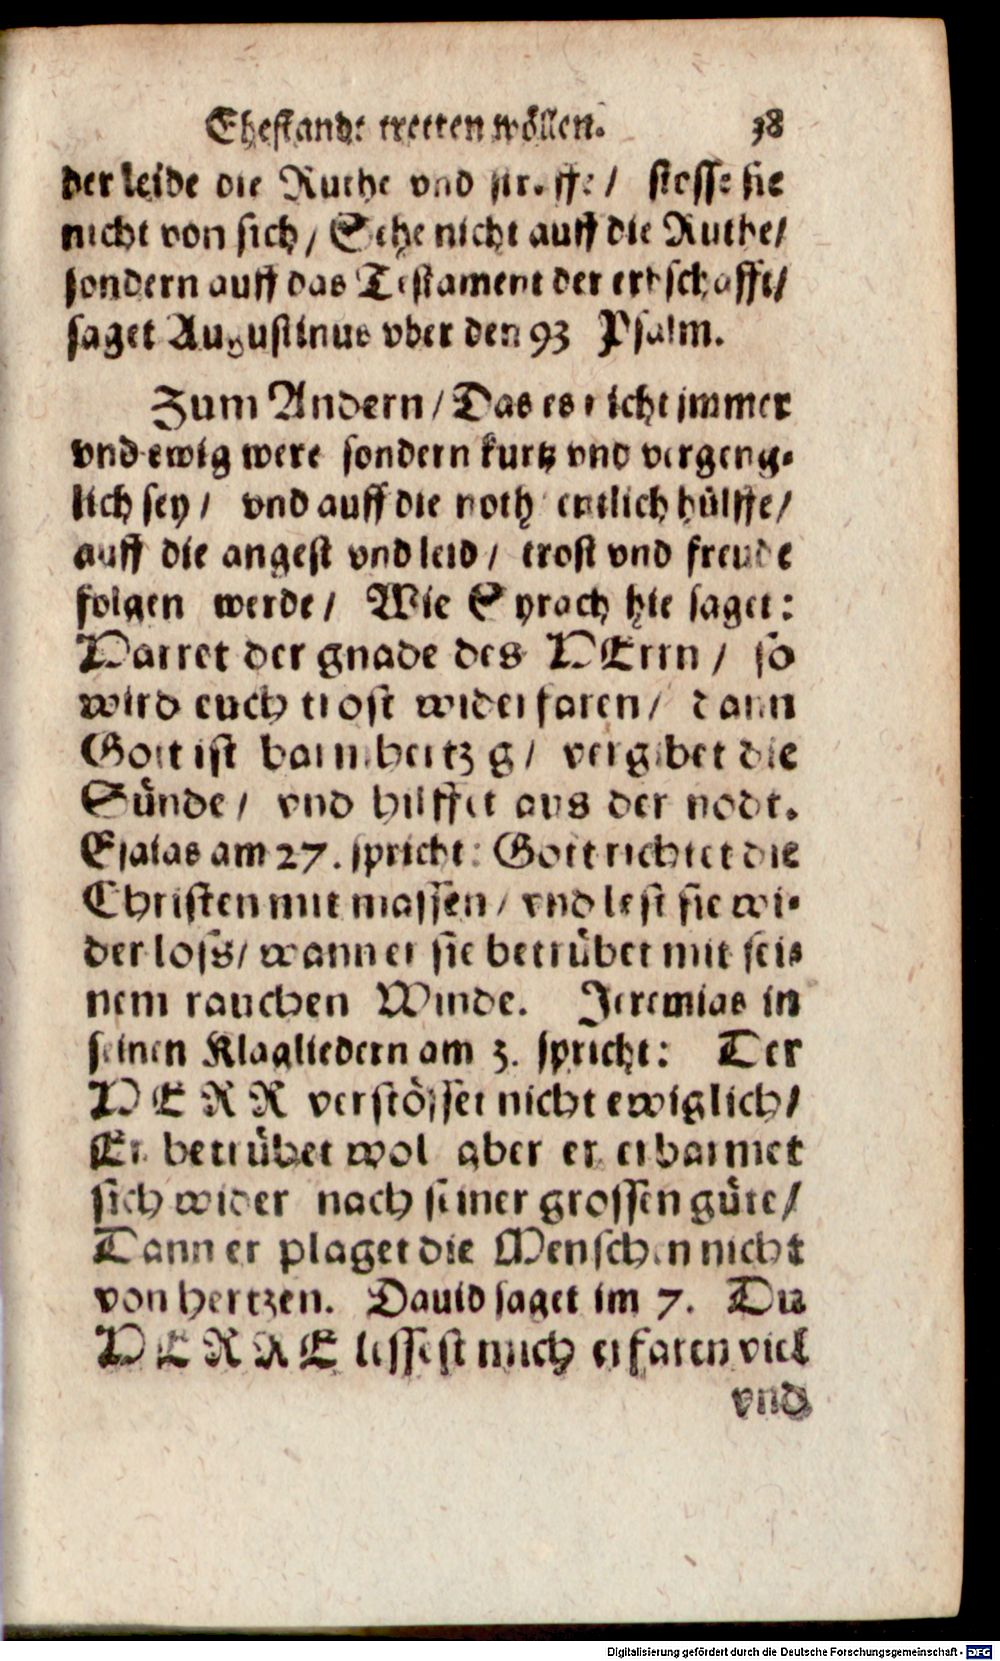 Ehestande tretten wöllen. 38
der leide die Ruthe vnd straffe / stosse sie
nicht von sich / Sehe nicht auff die Ruthe /
sondern auff das Testament der erbschafft /
saget Augustinus vber den 93 Psalm.
Zum Andern / Das es nicht jmmer
vnd ewig were sondern kurtz vnd vergeng-
lich sey / vnd auff die noth entlich hülffe /
auff die angest vnd leid / trost vnd freude
folgen werde / Wie Syrach hie saget:
Harret der gnade des HErrn / so
wird euch trost widerfaren / dann
Gott ist barmhertzig / vergibet die
Sünde / vnd hilffet aus der nodt.
Esaias am 27. spricht: Gott richtet die
Christen mit massen / vnd lest sie wi-
der loss / wann er sie betrübet mit sei-
nem rauchen Winde. Jeremias in
seinen Klagliedern am 3. spricht: Der
HERR verstösset nicht ewiglich /
Er betrübet wol aber er erbarmet
sich wider nach seiner grossen güte /
Dann er plaget die Menschen nicht
von hertzen. Dauid saget im 7. Du
HERRE lessest mich erfaren viel
vnd
Digitalisierung gefördert durch die Deutsche Forschungsgemeinschaft - DFG